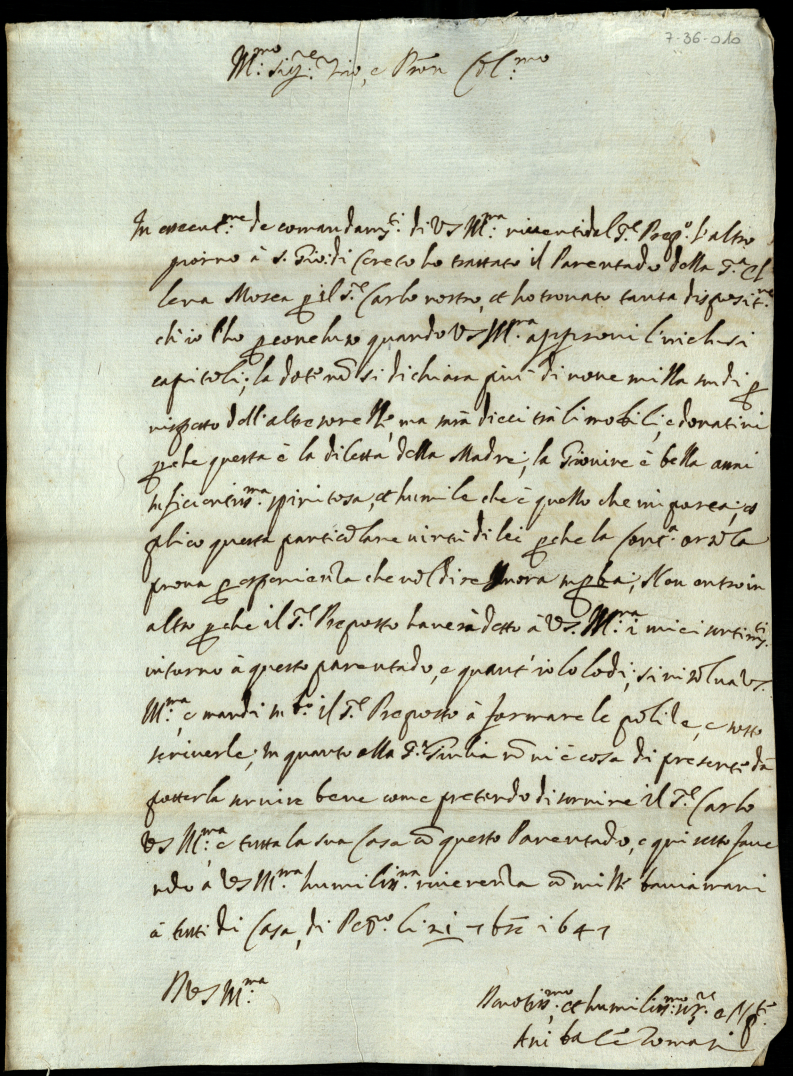 7-36-010
Ill:mo Sig:re Zio, e Pron Col:mo
In esecut:ne de comandam:ti di VS Ill:ma riceuti dal S.r Prep.o l'altro
giorno à S. Gio: di Cereto ho trattato il Parentado della S.ra El
lena Mosca p il S.r Carlo nostro, et ho trouato tanta disposit:ne
ch'io l'ho p concluso quando VS Ill:ma approui l'inclusi
capitoli; la dote nõ si dichiara più di noue milla scudi p
rispetto dell'altre sorelle, ma sarà dieci trà li mobili, e donatiui
pche questa è la diletta della Madre; la Giouine è bella assai
sufficientiss:ma spiritosa, et humile che è quello che importa;
plico questa particolare uirtù di lei pche la Cont.a Orsola
proua p esperienza che uol dire Nuora supba; Non entro in
altro pche il S.r Preposto hauerà detto à VS. Ill:ma i miei sentim:ti
intorno à questo parentado, e quant'io lo lodi; si risolua VS.
Ill:ma, e mandi sub.o il S.r Preposto à formare le polize, e sotto
scriuerle; in quanto alla S.ra Giulia nõ ui è cosa di presente dà
potterla seruire bene come pretendo di seruire il S.r Carlo
VS Ill:ma, e tutta la sua Casa cõ questo Parentado, e qui resto face
ndo à VS Ill:ma humiliss:ma riuerenza cõ mille bacciamani
à tutti di Casa, di Ped:o li 21 7bre 1647
D VS Ill:ma
Deuotiss:mo, et humiliss:mo ser:re e Nep:te
Anibale Tomasi